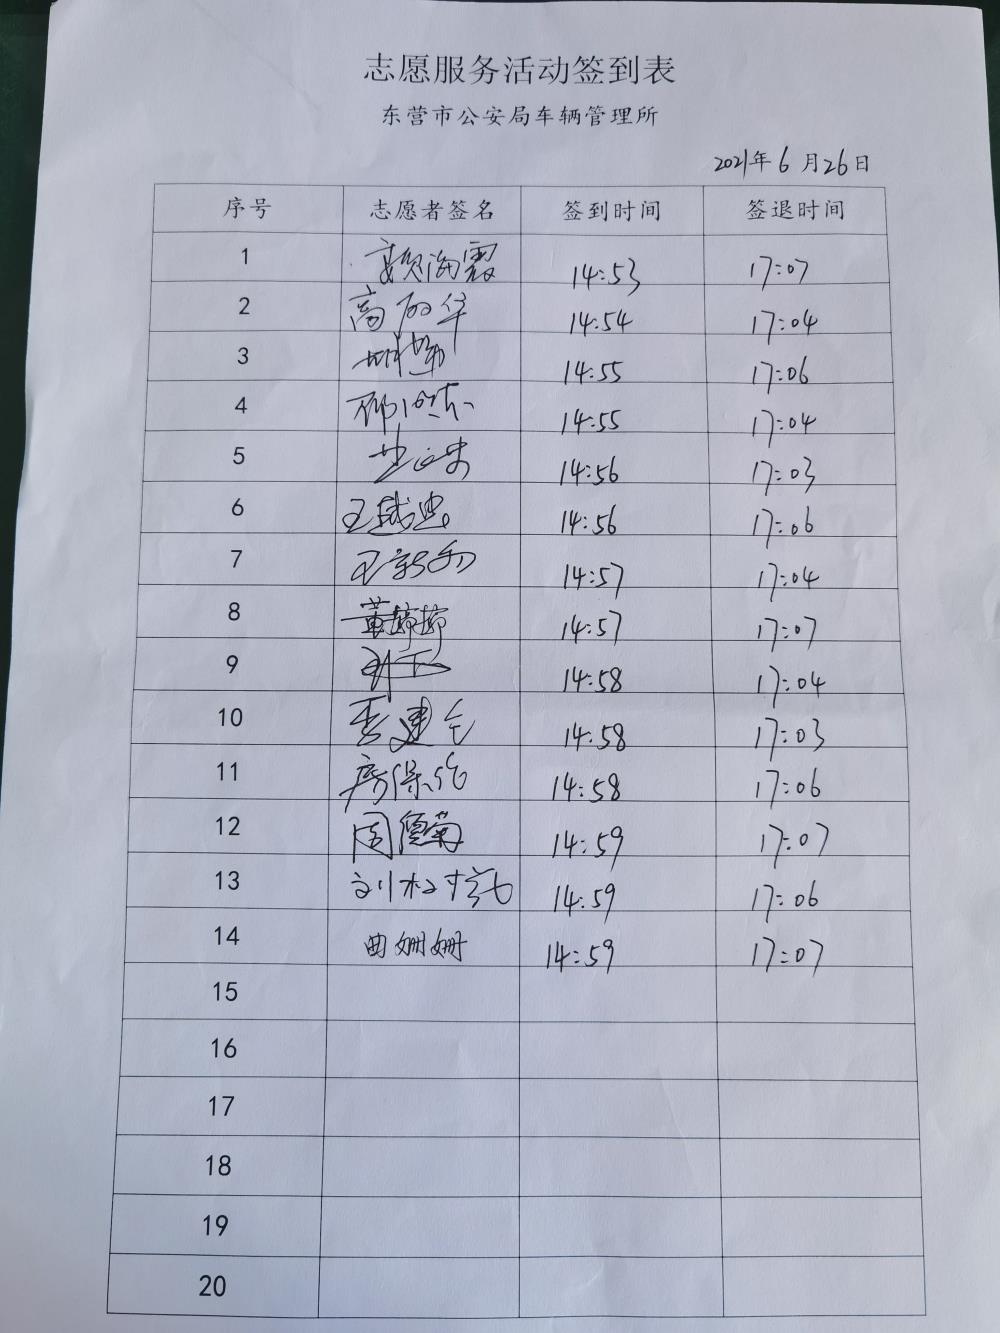 志愿服务活动签到表
东营市公安局车辆管理所
2021年6月26日
序号 志愿者签名 签到时间 签退时间
1 14:53 17:07
2 高丽华 14:54 17:04
3 14:55 17:06
4 14:55 17:04
5 14:56 17:03
6 14:56 17:06
7 14:57 17:04
8 黄婷婷 14:57 17:07
9 14:58 17:04
10 李建 14:58 17:03
11 房保 14:58 17:06
12 周 菊 14:59 17:07
13 刘 14:59 17:06
14 曲姗姗 14:59 17:07
15
16
17
18
19
20